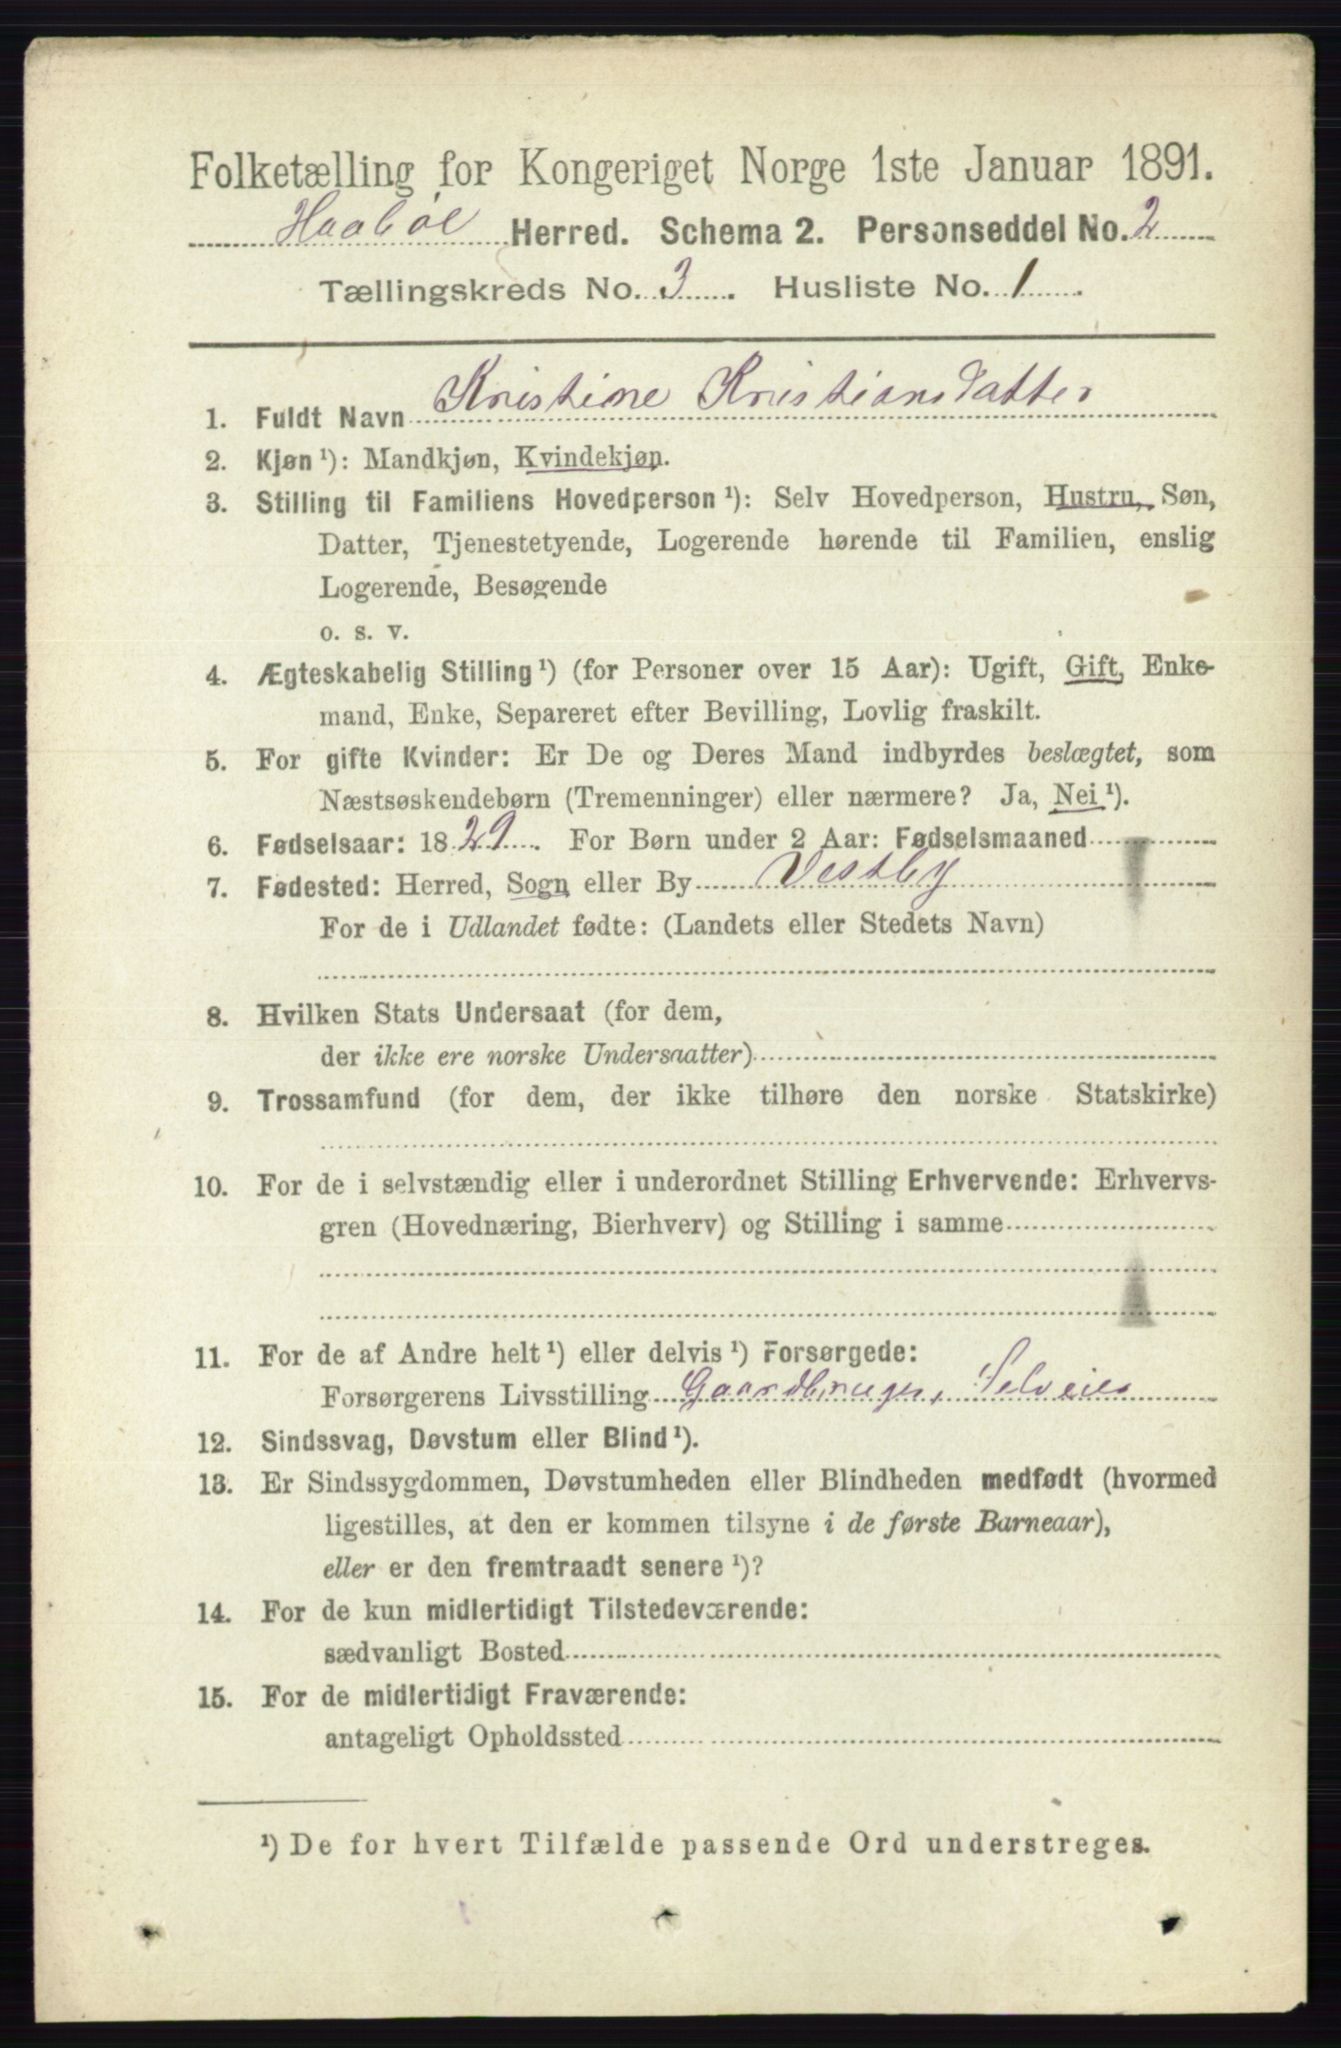 Folketælling for Kongeriget Norge 1ste Januar 1891.
Haabøl Herred. Schema 2. Personseddel No. 2
Tællingskreds No. 3. Husliste No. 1
1. Fuldt Navn Kristine Kristiansdatter
2. Kjøn ¹): Mandkjøn, Kvindekjøn.
3. Stilling til Familiens Hovedperson ¹): Selv Hovedperson, Hustru, Søn,
Datter, Tjenestetyende, Logerende hørende til Familien, enslig
Logerende, Besøgende
o. s. v.
4. Ægteskabelig Stilling ¹) (for Personer over 15 Aar): Ugift, Gift, Enke-
mand, Enke, Separeret efter Bevilling, Lovlig fraskilt.
5. For gifte Kvinder: Er De og Deres Mand indbyrdes beslægtet, som
Næstsøskendebørn (Tremenninger) eller nærmere? Ja, Nei ¹).
6. Fødselsaar: 1829. For Børn under 2 Aar: Fødselsmaaned
7. Fødested: Herred, Sogn eller By Vestby
For de i Udlandet fødte: (Landets eller Stedets Navn)
8. Hvilken Stats Undersaat (for dem,
der ikke ere norske Undersaatter)
9. Trossamfund (for dem, der ikke tilhøre den norske Statskirke)
10. For de i selvstændig eller i underordnet Stilling Erhvervende: Erhvervs-
gren (Hovednæring, Bierhverv) og Stilling i samme
11. For de af Andre helt ¹) eller delvis ¹) Forsørgede:
Forsørgerens Livsstilling Gaardbruger, Selveier
12. Sindssvag, Døvstum eller Blind ¹).
13. Er Sindssygdommen, Døvstumheden eller Blindheden medfødt (hvormed
ligestilles, at den er kommen tilsyne i de første Barneaar),
eller er den fremtraadt senere ¹)?
14. For de kun midlertidigt Tilstedeværende:
sædvanligt Bosted
15. For de midlertidigt Fraværende:
antageligt Opholdssted
¹) De for hvert Tilfælde passende Ord understreges.